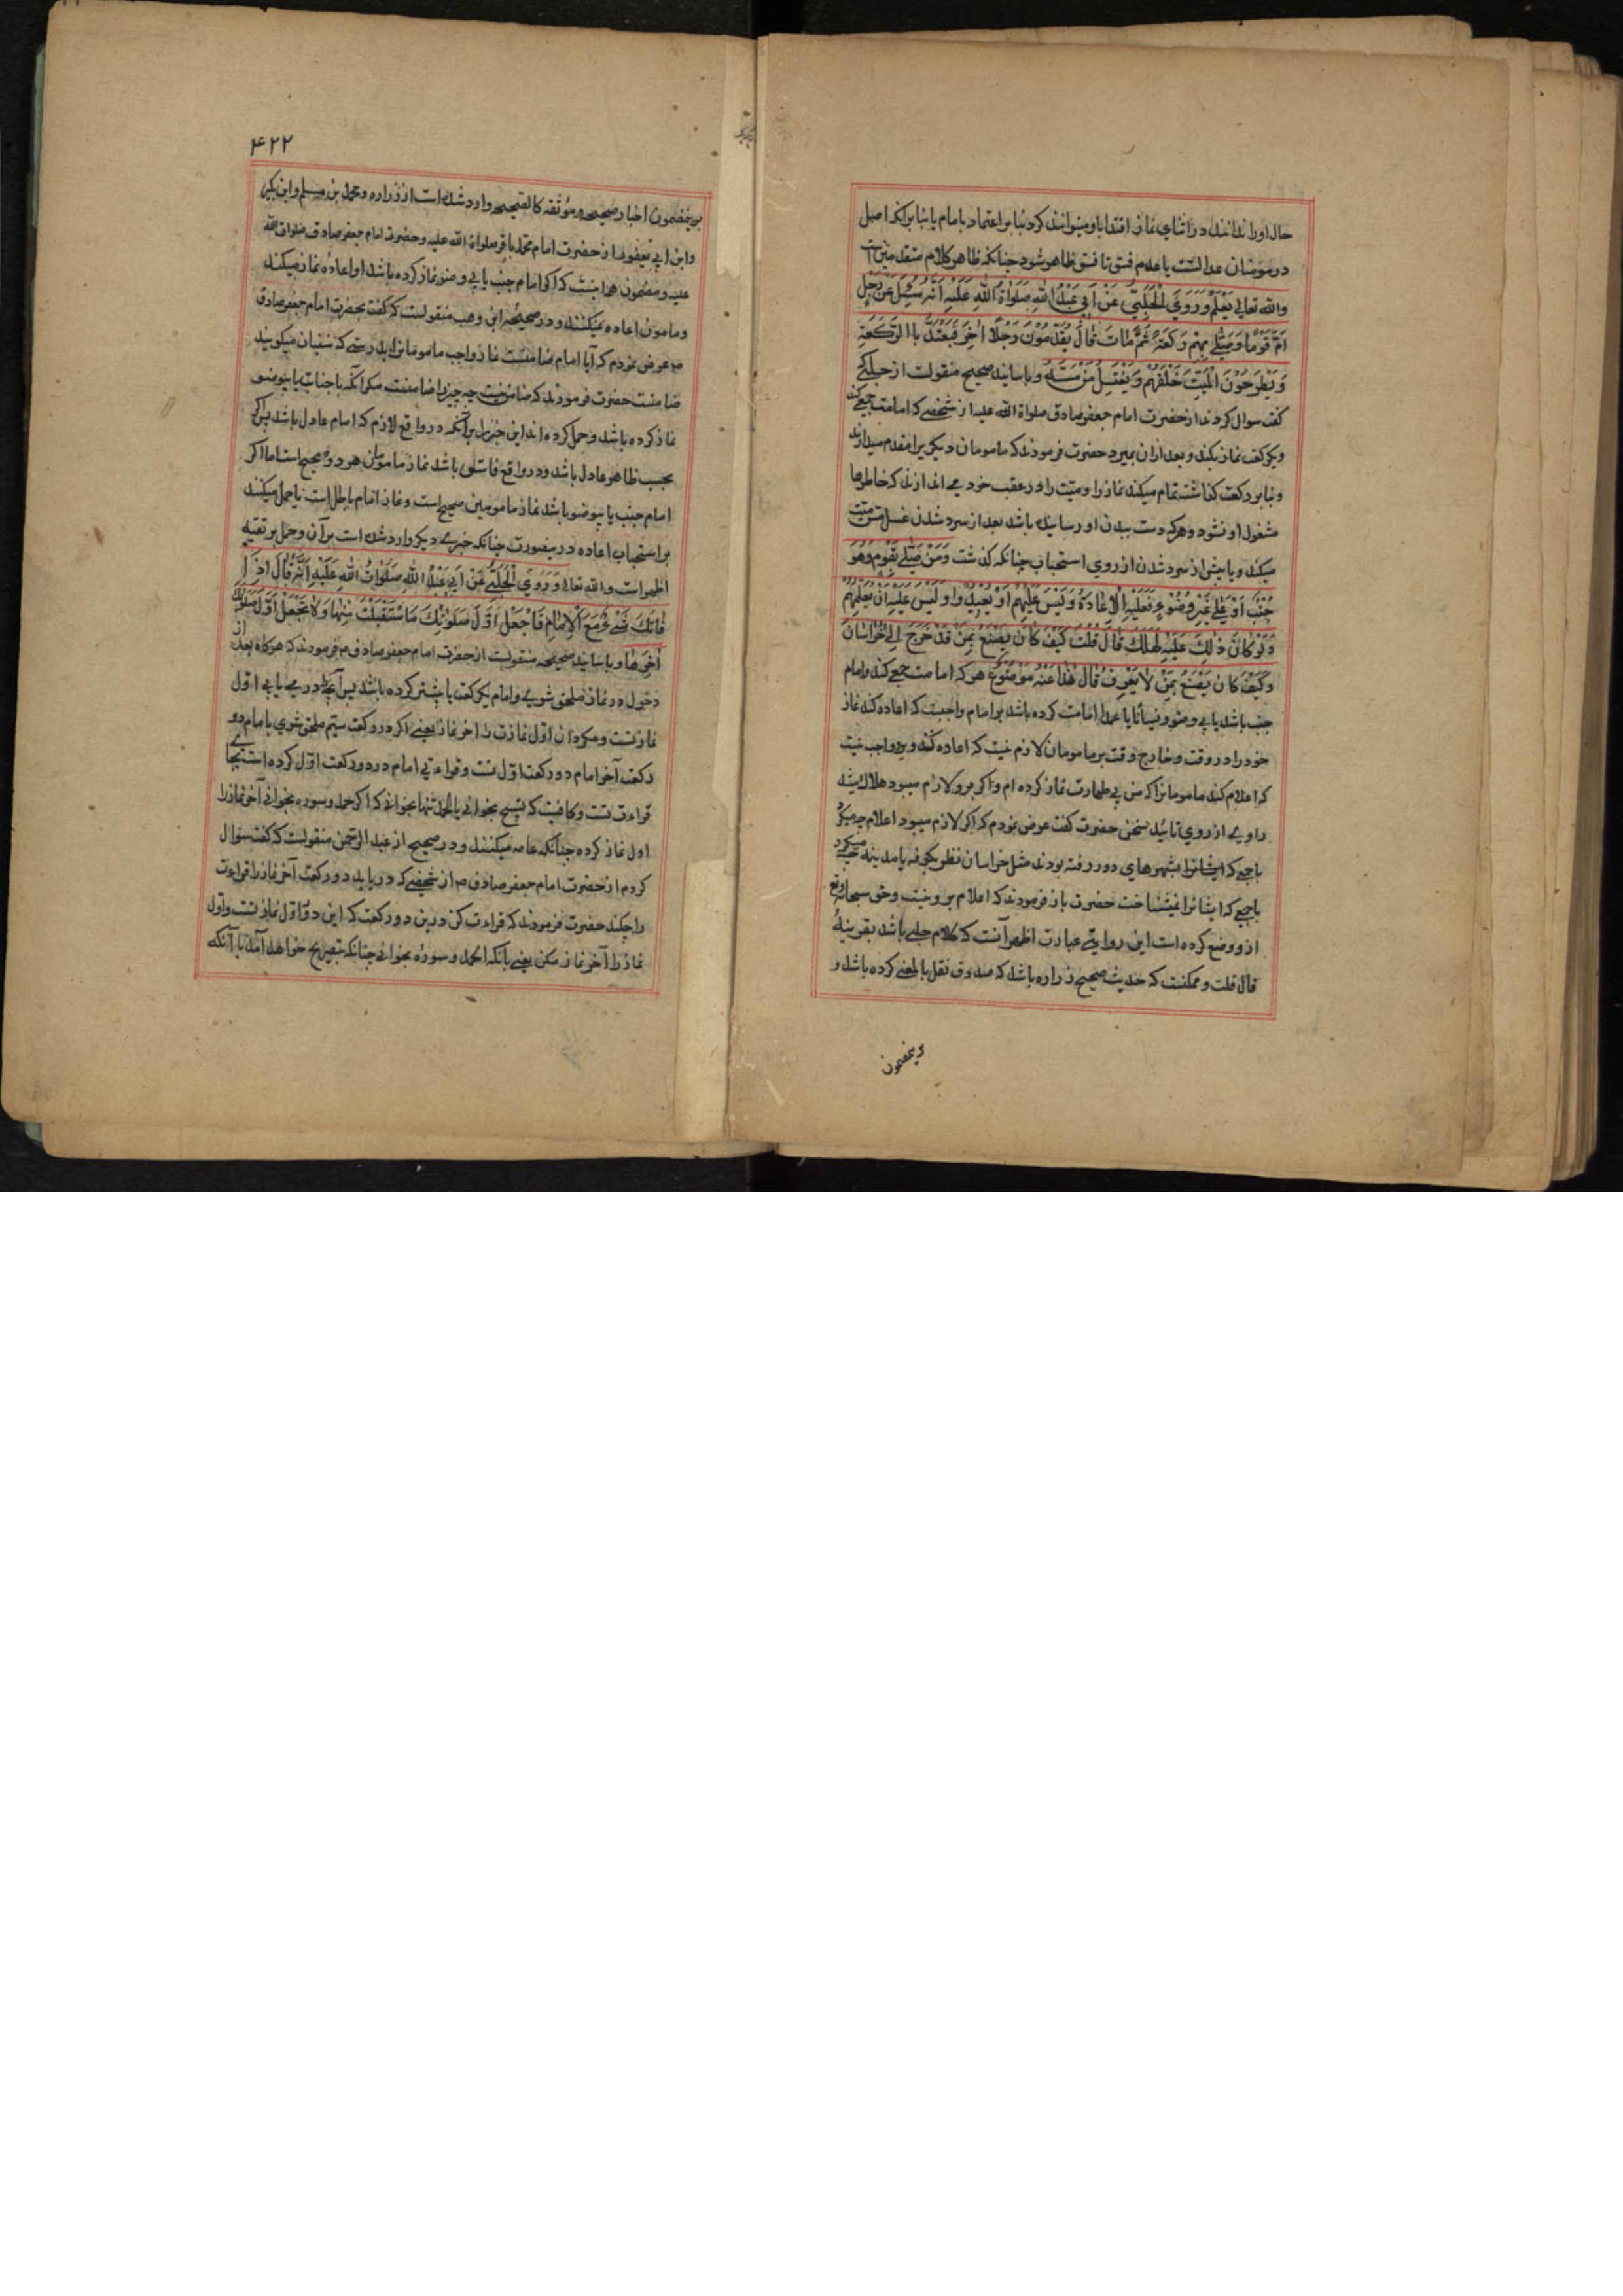 حال اورا ندانند در اثنای نماز اقتدا باو میتوانند کرد بنا بر اعتماد بامام یا بنا بر آنکه اصل
در مؤمنان عدالتست یا عدم فسق تا فسق ظاهر شود چنانکه ظاهر کلام متقدمین است
والله تعالی یعلم وَرَوَي الْحَلَبِيُّ عَنْ اَبِي عَبْدِ اللهِ صَلَوَاةُ اللهِ عَلَيْهِ اَنَّهُ سُئِلَ عَنْ رَجُلٍ
اَمَّ قَوْمًا وَصَلَّي بِهِمْ رَكْعَةً ثُمَّ مَاتَ قَالَ يُقَدِّمُوْنَ رَجُلًا اٰخَرَ فَيَعْتَدُّ باالرَّكْعَةِ
وَيَطْرَحُوْنَ الْمَيِّتَ خَلْفَهُمْ وَيَغْتَسِلُ مَنْ مَسَّهُ وباسانید صحیح منقولست از حلبی که
گفت سوال کردند از حضرت امام جعفر صادق صلواة الله علیه از شخصی که امامت جمعی کند
ویکرکعت نماز بکند و بعد ازان بمیرد حضرت فرمودند که مامومان دیگریرا مقدم میدارند
و بنا بر رکعت گذاشته تمام میکند نماز را و میّت را در عقب خود می اندازند که خاطرها
مشغول او نشود و هرکه دست ببدن او رسانیده باشد بعد از سرد شدن غسل مس میّت
میکند و یا پیش از سرد شدن از روي استحباب چنانکه گذشت وَمَنْ صَلَّي بِقَوْمٍ وَهُوَ
جُنُبٌ اَوْ عَلَي غَيْرِ وُضُوْءٍ فَعَلَيْهِ الْاِعَادَةُ وَلَيْسَ عَلَيْهِمْ اَوْ يُعِيْدُوا وَلَيْسَ عَلَيْهِ اَنْ يُعْلِمَهُمْ
وَلَوْ كَانَ ذٰلِكَ عَلَيْهِ لَهَلَكَ قَالَ قُلْتُ كَيْفَ كَانَ يَصْنَعُ بِمَنْ قَدْ خَرَجَ اِلٰي خُرَاسَانَ
وَكَيْفَ كَانَ يَصْنَعُ بِمَنْ لَا يَعْرِفُ قَالَ هٰذَا عَنْهُ مَوْضُوْعٌ هرکه امامت جمعی کند و امام
جنب باشد یا بی وضو و نسیانا یا عمدا امامت کرده باشد بر امام واجبست که اعاده کند نماز
خود را در وقت و خارج وقت بر مامومان لازم نیست که اعاده کنند و برو واجب نیست
که اعلام کند مامومانرا که من بی طهارت نماز کرده ام و اگر برو لازم میبود هلاک میشد
راوی از روي تائید سخن حضرت گفت عرض نمودم که اگر لازم میبود اعلام چه میکرد
باجمعی که ایشانرا بشهرهاي دور رفته بودند مثل خراسان نظر بکوفه یا مدینه چه میکرد
باجمعی که ایشانرا نمیشناخت حضرت باز فرمودند که اعلام برو نیست و حق سبحانه وتع
ازو وضع کرده است این روایة عبارت اظهر آنست که کلام حلبی باشد بقرینهٔ
قال قلت و ممکنست که حدیث صحیح زراره باشد که صدوق نقل بالمعنی کرده باشد و
وینمضمون
۴۲۲
برینمضمون اخبار صحیحه و موثقه کالصحیح وارد شده است از زراره و محمد بن مسلم و ابن بکیر
و ابن ابی یعفور از حضرت امام محمد باقر صلواة الله علیه و حضرت امام جعفر صادق صلوات الله
علیه و مضمون همه اینست که اگر امام جنب یا بی وضو نماز کرده باشد او اعادهٔ نماز میکند
و مامون اعاده نمیکنند و در صحیحه ابن وهب منقولست که گفت بحضرت امام جعفر صادق
ص عرض نمودم که آیا امام ضامنست نماز واجب مامومانرا بدرستی که سنّیان میگویند
ضامنست حضرت فرمودند که ضامن نیست چه چیز را ضامنست مگر آنکه باجنابت یا بیوضو
نماز کرده باشد و حمل کرده اند این خبر را بر آنکه در واقع لازم که امام عادل باشد پس اگر
بحسب ظاهر عادل باشد و در واقع فاسق باشد نماز مامومان هر دو صحیح است اما اگر
امام جنب یا بیوضو باشد نماز مامومین صحیح است و نماز امام باطل است یا حمل میکنند
بر استحباب اعاده درینصورت چنانکه خبرے دیگر وارد شده است بر آن و حمل بر تقیه
اظهر است والله تعالی وَرَوَي الْحَلَبِيُّ عَنْ اَبِي عَبْدِ اللهِ صَلَوٰاتُ اللهِ عَلَيْهِ اَنَّهُ قَالَ اِذَا
فَاتَكَ شَيْءٌ مَعَ الْاِمَامِ فَاجْعَلْ اَوَّلَ صَلَوٰتِكَ مَا اسْتَقْبَلْتَ مِنْهَا وَلَا تَجْعَلْ اَوَّلَ صَلَوٰتِكَ
اٰخِرَهَا و باسانید صحیحه منقولست از حضرت امام جعفر صادق ص فرمودند که هرگاه بعد از
دخول در نماز ملحق شوی و امام یکرکعت یا بیشتر کرده باشد پس آنچه را در می یابی اول
نماز تست و مگردان اوّل نمازت را آخر نماز یعنی اگر در رکعت سیّم ملحق شوي با امام دو
رکعت آخر امام دو رکعت اوّل تست و قراءتی امام در دو رکعت اوّل کرده است بجاے
قراءت تست و کافیست که تسبیح بخوانی یا الحمد تنها بخوانی که اگر حمد و سوره بخوانی آخر نماز را
اول نماز کرده چنانکه عامه میکنند و در صحیح از عبد الرحمن منقولست که گفت سؤال
کردم از حضرت امام جعفر صادق ص از شخصی که دریابد دو رکعت آخر نماز را قراءت
را چکند حضرت فرمودند که قراءت کن درین دو رکعت که این دو اوّل نماز تست و اول
نماز را آخر نماز مکن یعنی بآنکه الحمد و سوره بخوانی چنانکه بتصریح خواهد آمد با آنکه